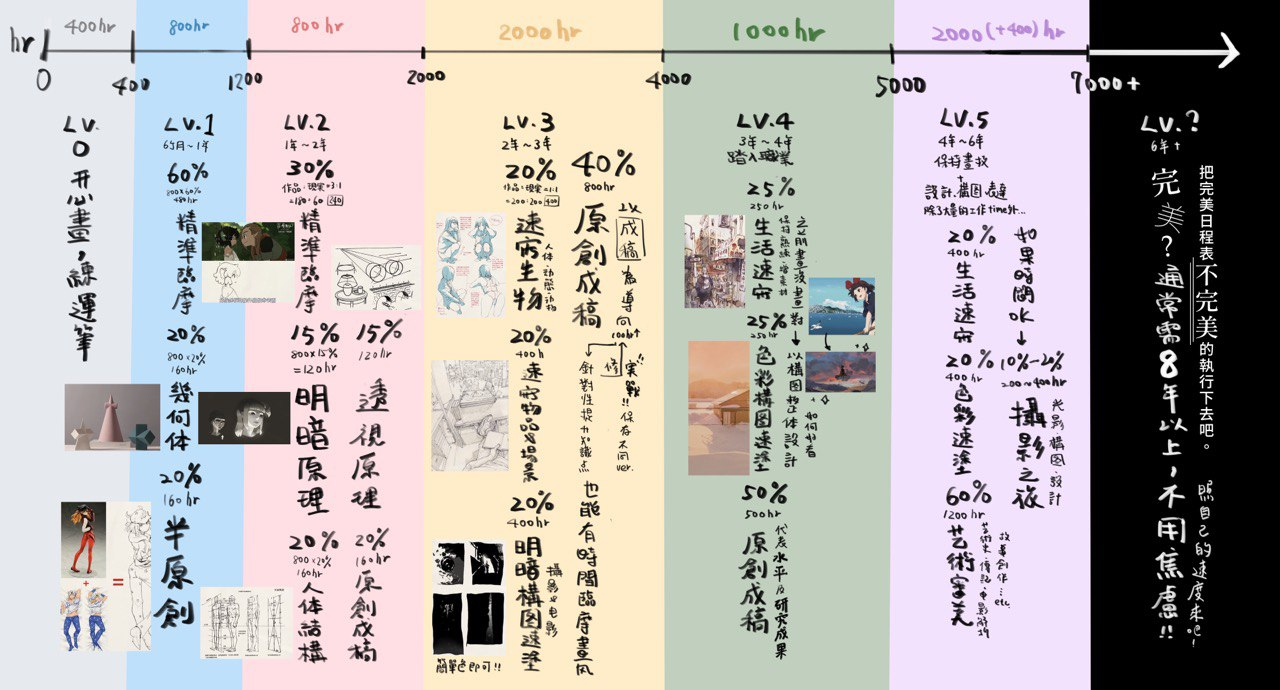 hr
400hr
800hr
800hr
2000hr
1000hr
2000(+400)hr
0
400
1200
2000
4000
5000
7000+
LV.
0
開心畫，練運筆
LV.1
6個月~1年
60%
800×60%
480hr
精準臨摩
20%
800×20%
160hr
幾何体
20%
160hr
半原創
LV.2
1年~2年
30%
作品:現實=3:1
=180:60 240
精準臨摩
15%
800×15%
=120hr
明暗原理
15%
120hr
透視原理
20%
800×20%
160hr
人体結構
20%
160hr
原創成稿
LV.3
2年~3年
20%
作品:現實=1:1
=200:200 400
速寫生物
人体、動態、動物
20%
400h
速寫物品&場景
20%
400hr
明暗構图速塗
攝影&电影
簡單色即可!!
40%
800hr
原創成稿
以成稿為導向
100hr↑
修
實戰!!
保存不同ver.
針對性提升知識点
也能有時間臨摩畫风
LV.4
3年~4年
踏入職業
25%
250hr
生活速寫
保持熟練、增素材
25%
250hr
色彩構图速塗
立即畫沒畫對
以構图为主体設計
如何好看
50%
500hr
原創成稿
代表水平及研究成果
LV.5
4年~6年
保持畫技
+
設計、構图、表達
除了大量的工作time外...
20%
400hr
生活速寫
20%
400hr
色彩速塗
60%
1200hr
艺術審美
艺術史、傳記、电影解構
故事創作...etc.
如果時間OK↓
10%-20%
200~400hr
攝影之旅
光影、構图、設計
LV.?
6年+
完美?通常需8年以上，不用焦慮!!
把完美日程表不完美的執行下去吧。
照自己的速度來吧!